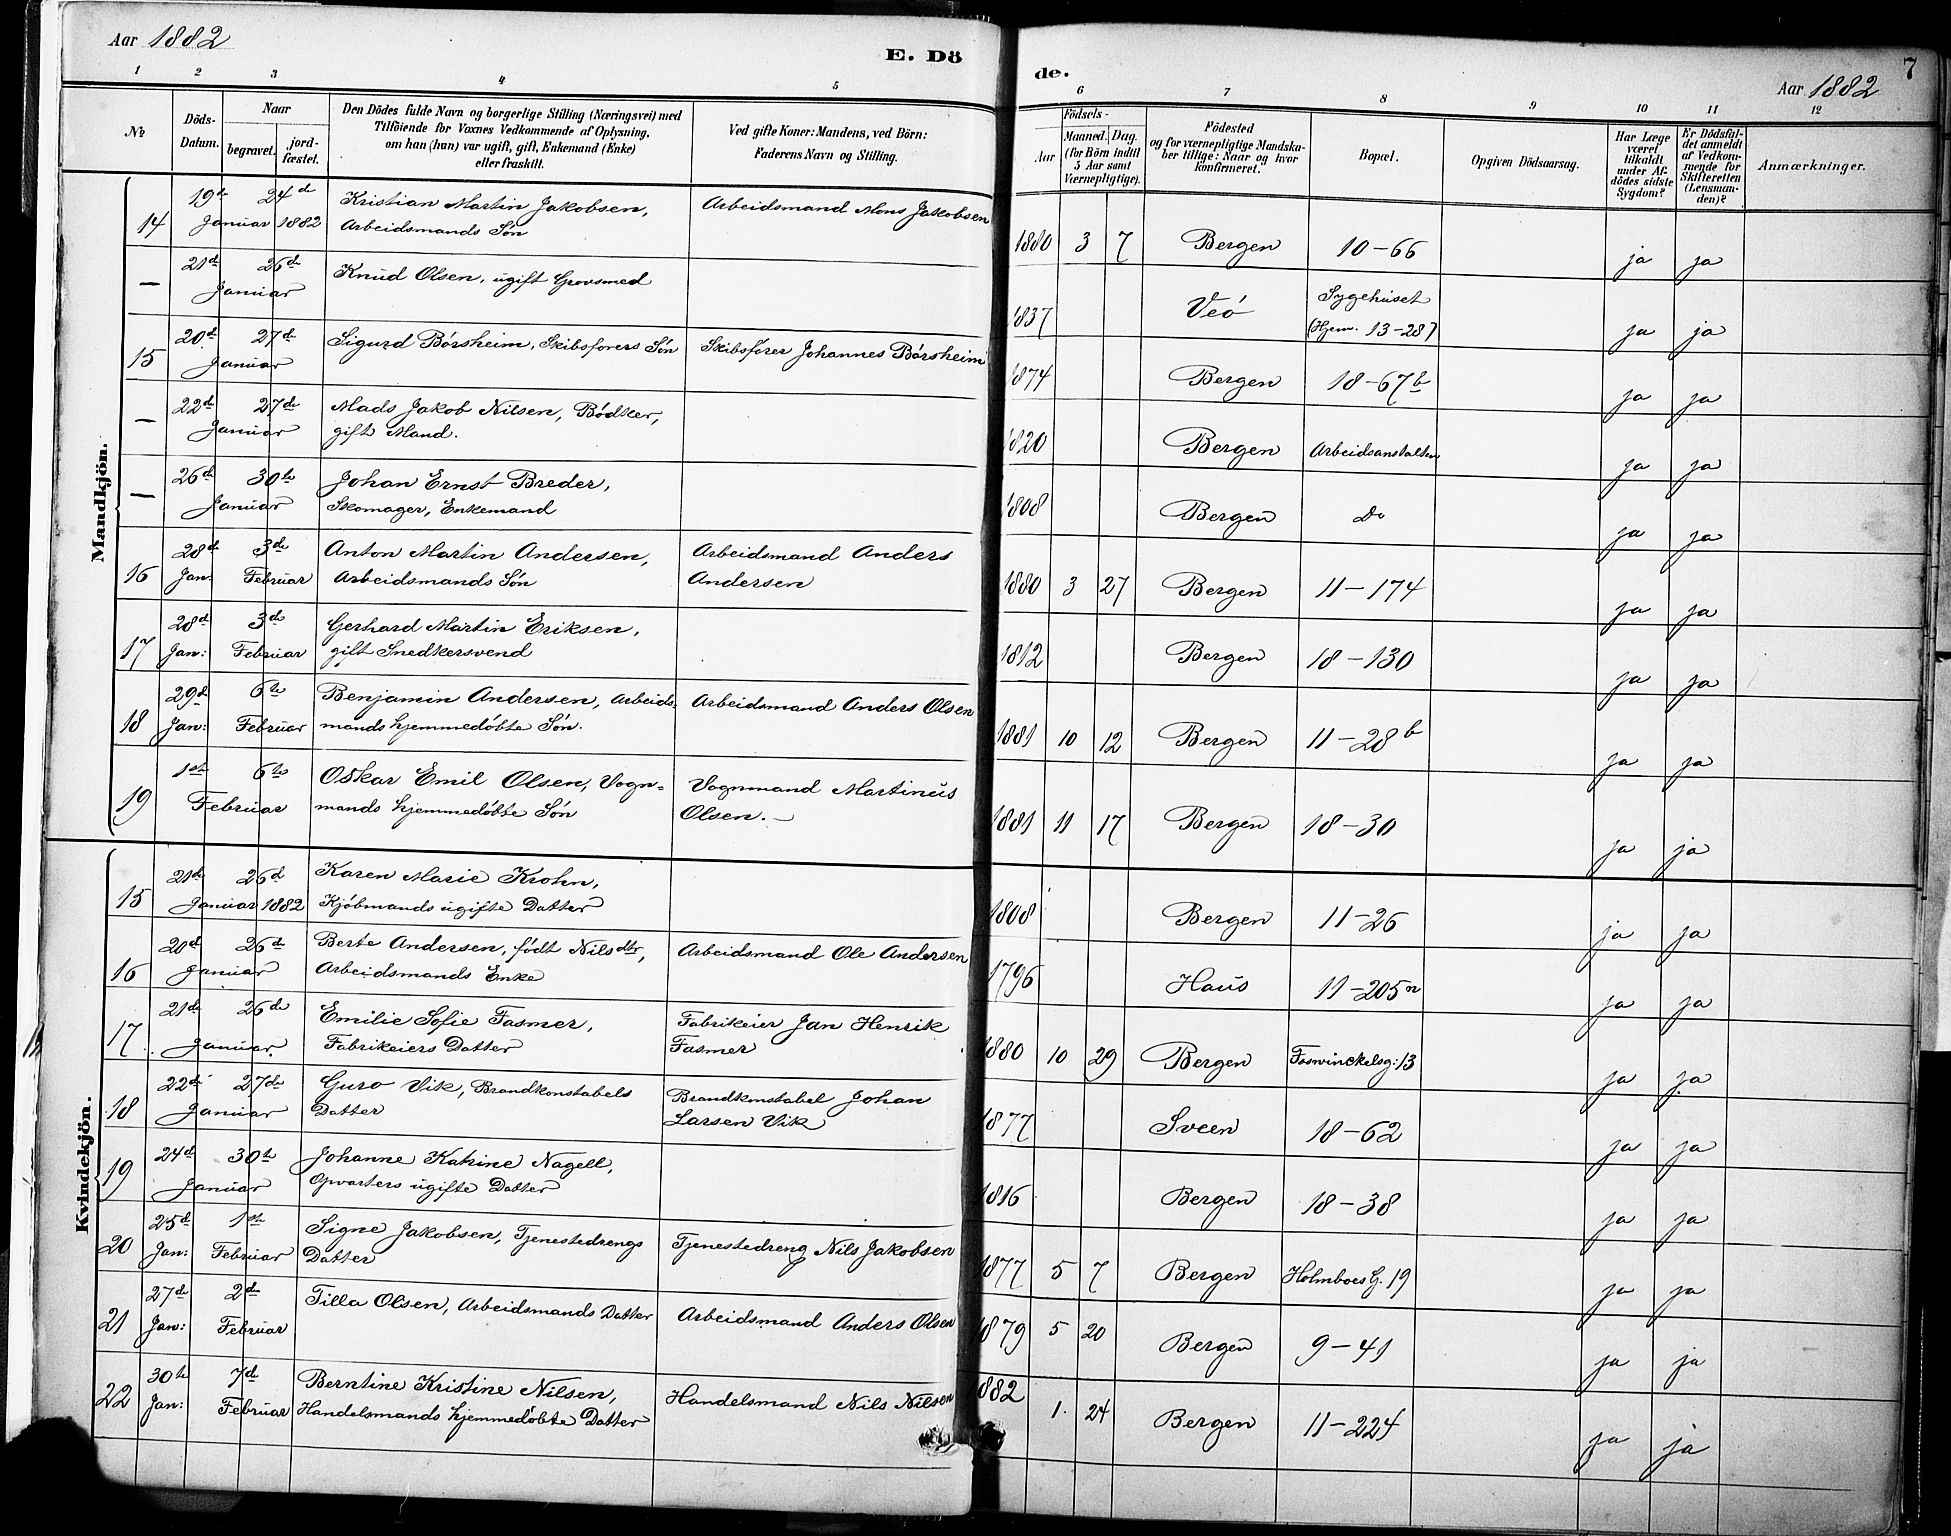 Aar 1882
E. Dö
de.
7
Aar 1882
1 2 3 4 5 6 7 8 9 10 11 12
№
Döds-Datum.
Naar
begravet.
jordfæstet.
Den Dödes fulde Navn og borgerlige Stilling (Næringsvei) med
Tilföiende for Voxnes Vedkommende af Oplysning,
om han (hun) var ugift, gift, Enkemand (Enke)
eller fraskilt.
Ved gifte Koner: Mandens, ved Börn:
Faderens Navn og Stilling.
Födsels-
Aar
Maaned.
Dag.
(for Börn indtil
5 Aar samt
Værnepligtige).
Födested
og for værnepligtige Mandska-
ber tillige: Naar og hvor
konfirmeret.
Bopæl.
Opgiven Dödsaarsag.
Har Læge
været
tilkaldt
under Af-
dödes sidste
Sygdom?
Er Dödsfal-
det anmeldt
af Vedkom-
mende for
Skifteretten
(Lensman-
den)?
Anmærkninger.
Mandkjön.
14 19de 24de Kristian Martin Jakobsen, Arbeidsmand Mons Jakobsen
Januar 1882 Arbeidsmands Søn
1880 3 7 Bergen 10-66 ja ja
— 21de 26de Knud Olsen, ugift Grovsmed
Januar
1837 Veø Sygehuset
(Hjem. 13-28) ja ja
15 20de 27de Sigurd Børsheim, Skibsførers Søn Skibsfører Johannes Børsheim
Januar
1874 Bergen 18-67b ja ja
— 22de 27de Mads Jakob Nilsen, Bødker,
Januar gift Mand.
1820 Bergen Arbeidsanstalten ja ja
— 26de 30te Johan Ernst Breder,
Januar Skomager, Enkemand
1808 Bergen Do ja ja
16 28de 3de Anton Martin Andersen, Arbeidsmand Anders
Jan: Februar Arbeidsmands Søn Andersen
1880 3 27 Bergen 11-174 ja ja
17 28de 3de Gerhard Martin Eriksen,
Jan: Februar gift Snedkersvend
1812 Bergen 18-130 ja ja
18 29de 6te Benjamin Andersen, Arbeids- Arbeidsmand Anders Olsen
Jan: Februar mands hjemmedøbte Søn.
1881 10 12 Bergen 11-28b ja ja
19 1ste 6te Oskar Emil Olsen, Vogn- Vognmand Martinus
Februar mands hjemmedøbte Søn Olsen.
1881 11 17 Bergen 18-30 ja ja
Kvindekjön.
15 21de 26de Karen Marie Krohn,
Januar 1882 Kjøbmands ugifte Datter
1808 Bergen 11-26 ja ja
16 20de 26de Berte Andersen, født Nilsdtr, Arbeidsmand Ole Andersen
Januar Arbeidsmands Enke
1796 Haus 11-205 ja ja
17 21de 26de Emilie Sofie Fasmer, Fabrikeier Jan Henrik
Januar Fabrikeiers Datter Fasmer
1880 10 29 Bergen Foswinckelsg: 13 ja ja
18 22de 27de Guro Vik, Brandkonstabels Brandkonstabel Johan
Januar Datter Larsen Vik
1877 Sveen 18-62 ja ja
19 24de 30te Johanne Katrine Nagell,
Januar Opvarters ugifte Datter
1816 Bergen 18-38 ja ja
20 25de 1ste Signe Jakobsen, Tjenestedrengs Tjenestedreng Nils Jakobsen
Jan: Februar Datter
1877 5 7 Bergen Holmboes G. 19 ja ja
21 27de 2de Tilla Olsen, Arbeidsmands Datter Arbeidsmand Anders Olsen
Jan: Februar
1879 5 20 Bergen 9-41 ja ja
22 30te 7de Berntine Kristine Nilsen, Handelsmand Nils Nilsen
Jan: Februar Handelsmands hjemmedøbte Datter
1882 1 24 Bergen 11-224 ja ja